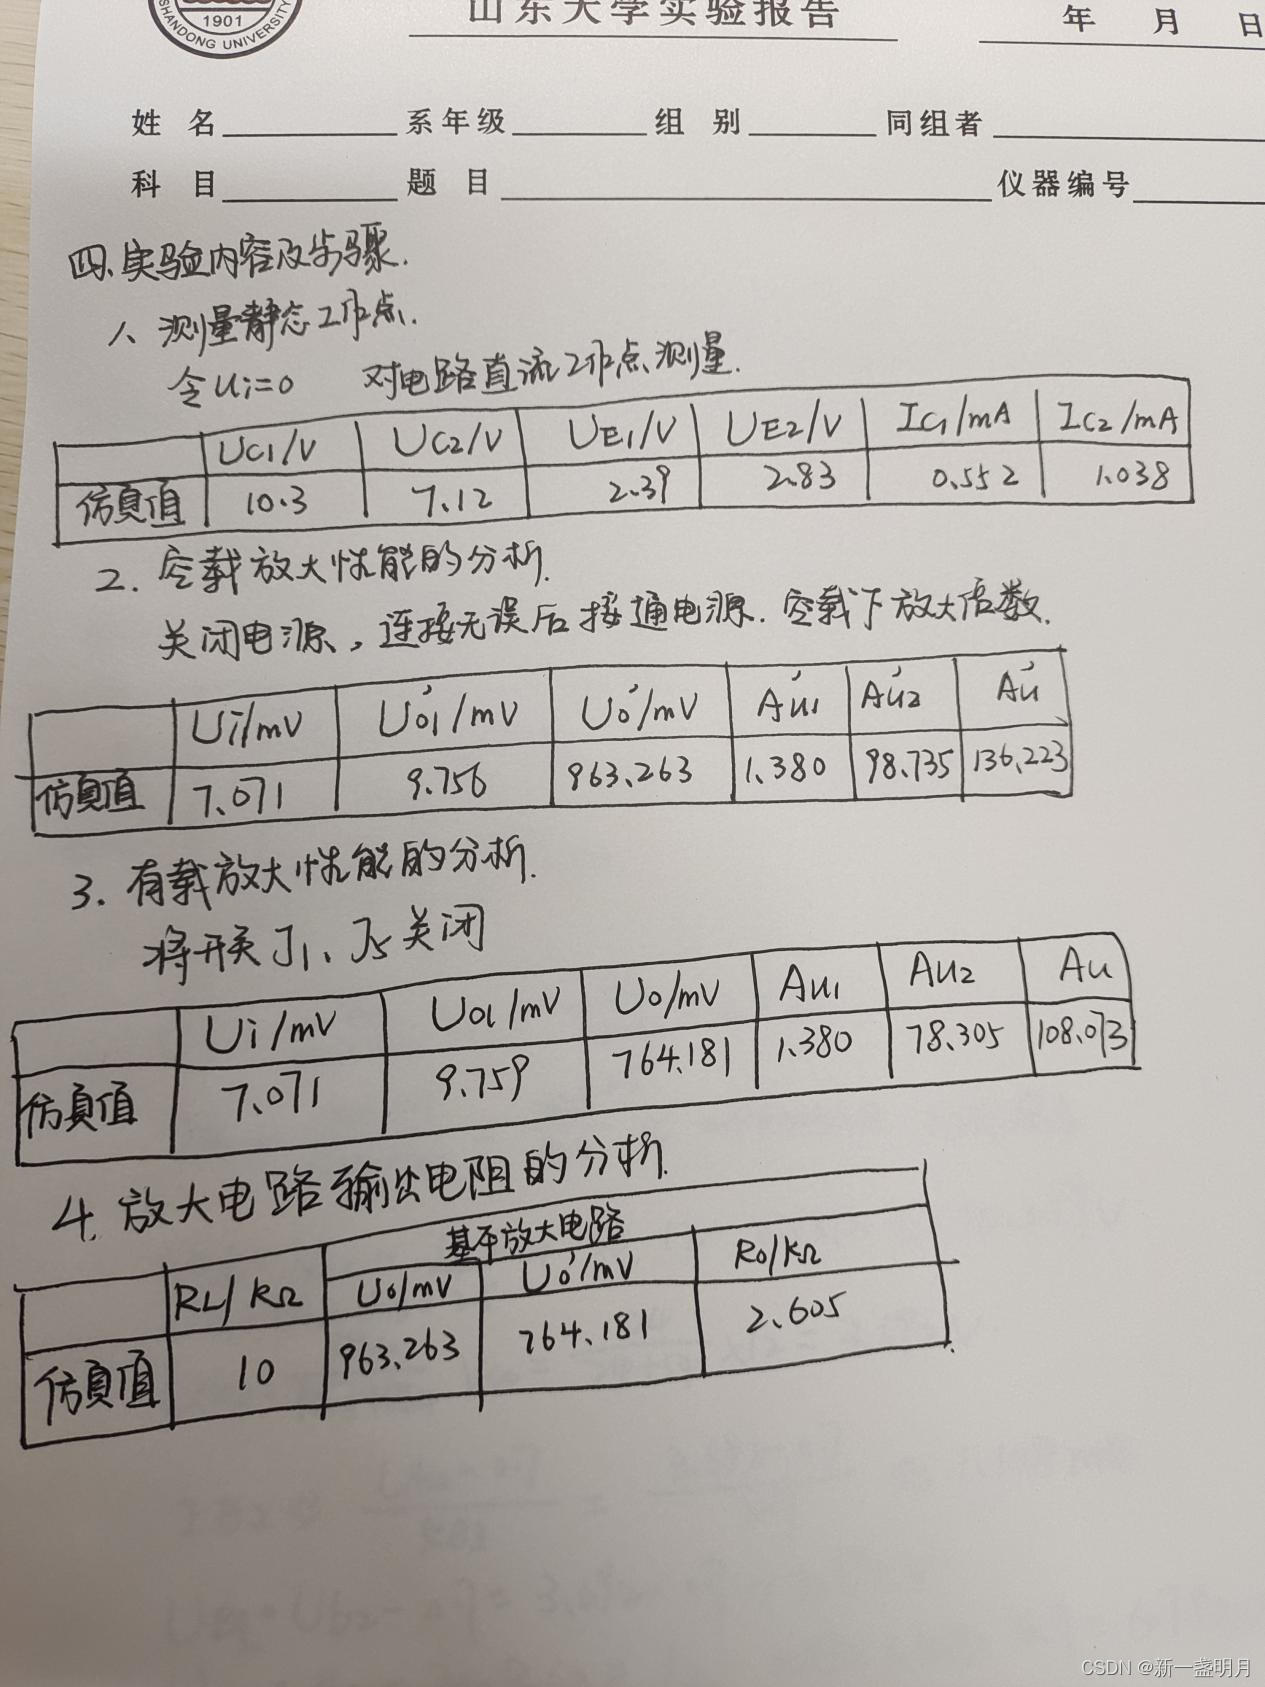 1901
SHANDONG UNIVERSITY
山东大学实验报告
年 月 日
姓 名 系年级 组 别 同组者
科 目 题 目 仪器编号
四、实验内容及步骤.
1、测量静态工作点.
令Ui=0 对电路直流工作点测量.
UC1/V UC2/V UE1/V UE2/V IC1/mA IC2/mA
仿真值 10.3 7.12 2.39 2.83 0.552 1.038
2. 空载放大性能的分析.
关闭电源，连接无误后接通电源. 空载下放大倍数.
Ui/mV Uo1'/mV Uo'/mV Au1' Au2' Au'
仿真值 7.071 9.756 963.263 1.380 98.735 136.223
3. 有载放大性能的分析.
将开关J1、J5关闭
Ui/mV Uo1/mV Uo/mV Au1 Au2 Au
仿真值 7.071 9.759 764.181 1.380 78.305 108.073
4. 放大电路输出电阻的分析.
基本放大电路
RL/KΩ Uo/mV Uo'/mV Ro/KΩ
仿真值 10 963.263 764.181 2.605
CSDN @新一盏明月